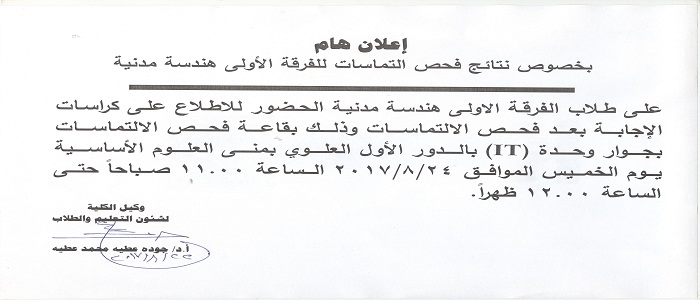 إعلان هام
بخصوص نتائج فحص التماسات للفرقة الأولى هندسة مدنية
على طلاب الفرقة الاولى هندسة مدنية الحضور للاطلاع على كراسات
الإجابة بعد فحص الالتماسات وذلك بقاعة فحص الالتماسات
بجوار وحدة (IT) بالدور الأول العلوي بمنى العلوم الأساسية
يوم الخميس الموافق ٢٠١٧/٨/٢٤ الساعة ١١.٠٠ صباحاً حتى
الساعة ١٢.٠٠ ظهراً.
وكيل الكلية
لشئون التعليم والطلاب
أ.د/ جوده عطيه محمد عطيه
٢٠١٧/٨/٢٢